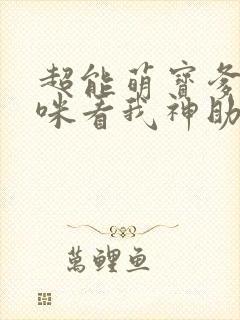 超能萌寶爹
咪看我神助
萬鯉魚